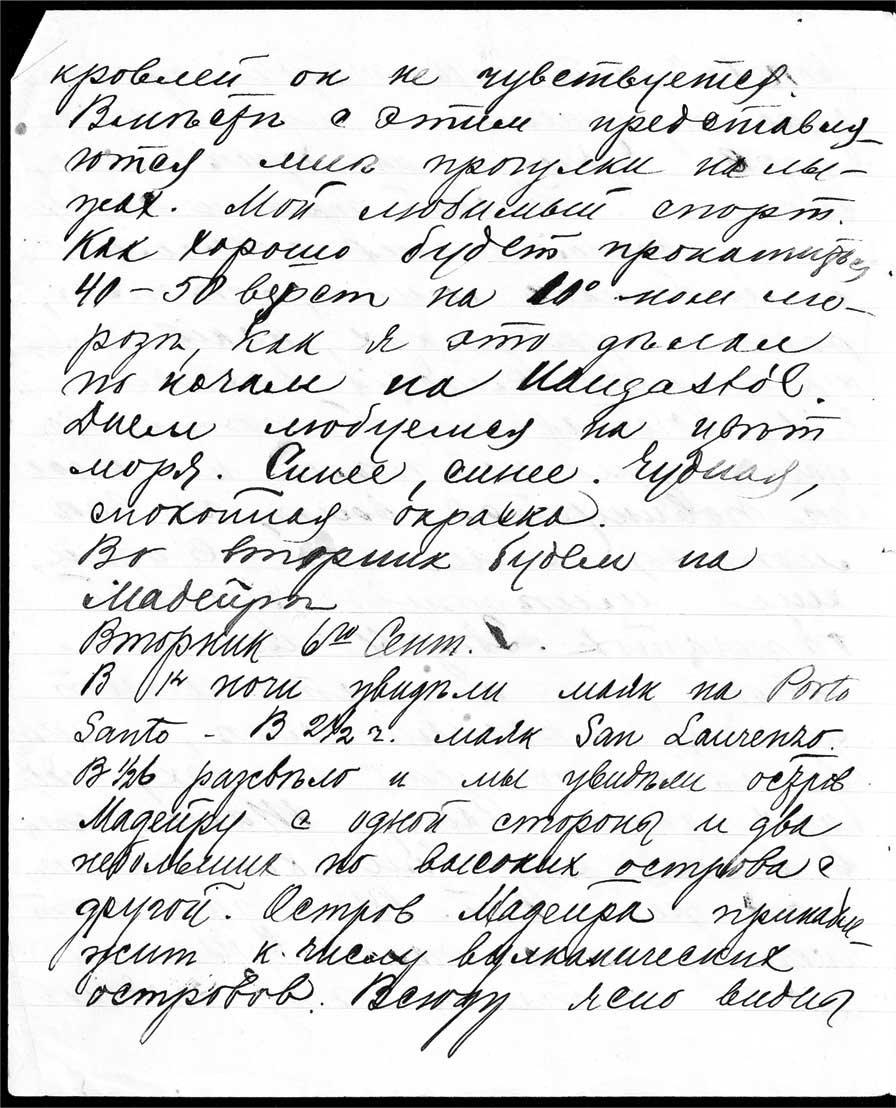 кровлей он не чувствуется.
Вместѣ с этим представля-
ются мнѣ прогулки на лы-
жах. Мой любимый спорт.
Как хорошо будет прокатиться
40 – 50 верст на 10° ном мо-
розѣ, как я это дѣлал
по ночам на Haugastöl.
Днем любуемся на цвѣт
моря. Синее, синее. Чудная,
спокойная окраска.
Во вторник будем на
Мадейрѣ
Вторник 6го Сент.
В 12 ночи увидѣли маяк на Porto
Santo – В 2 1/2 ч. маяк San Laurenzo.
В 1/2 6 разсвѣло и мы увидѣли остров
Мадейру с одной стороны и два
небольших но высоких острова с
другой. Остров Мадейра принадле-
жит к числу вулканических
островов. Всюду ясно видны